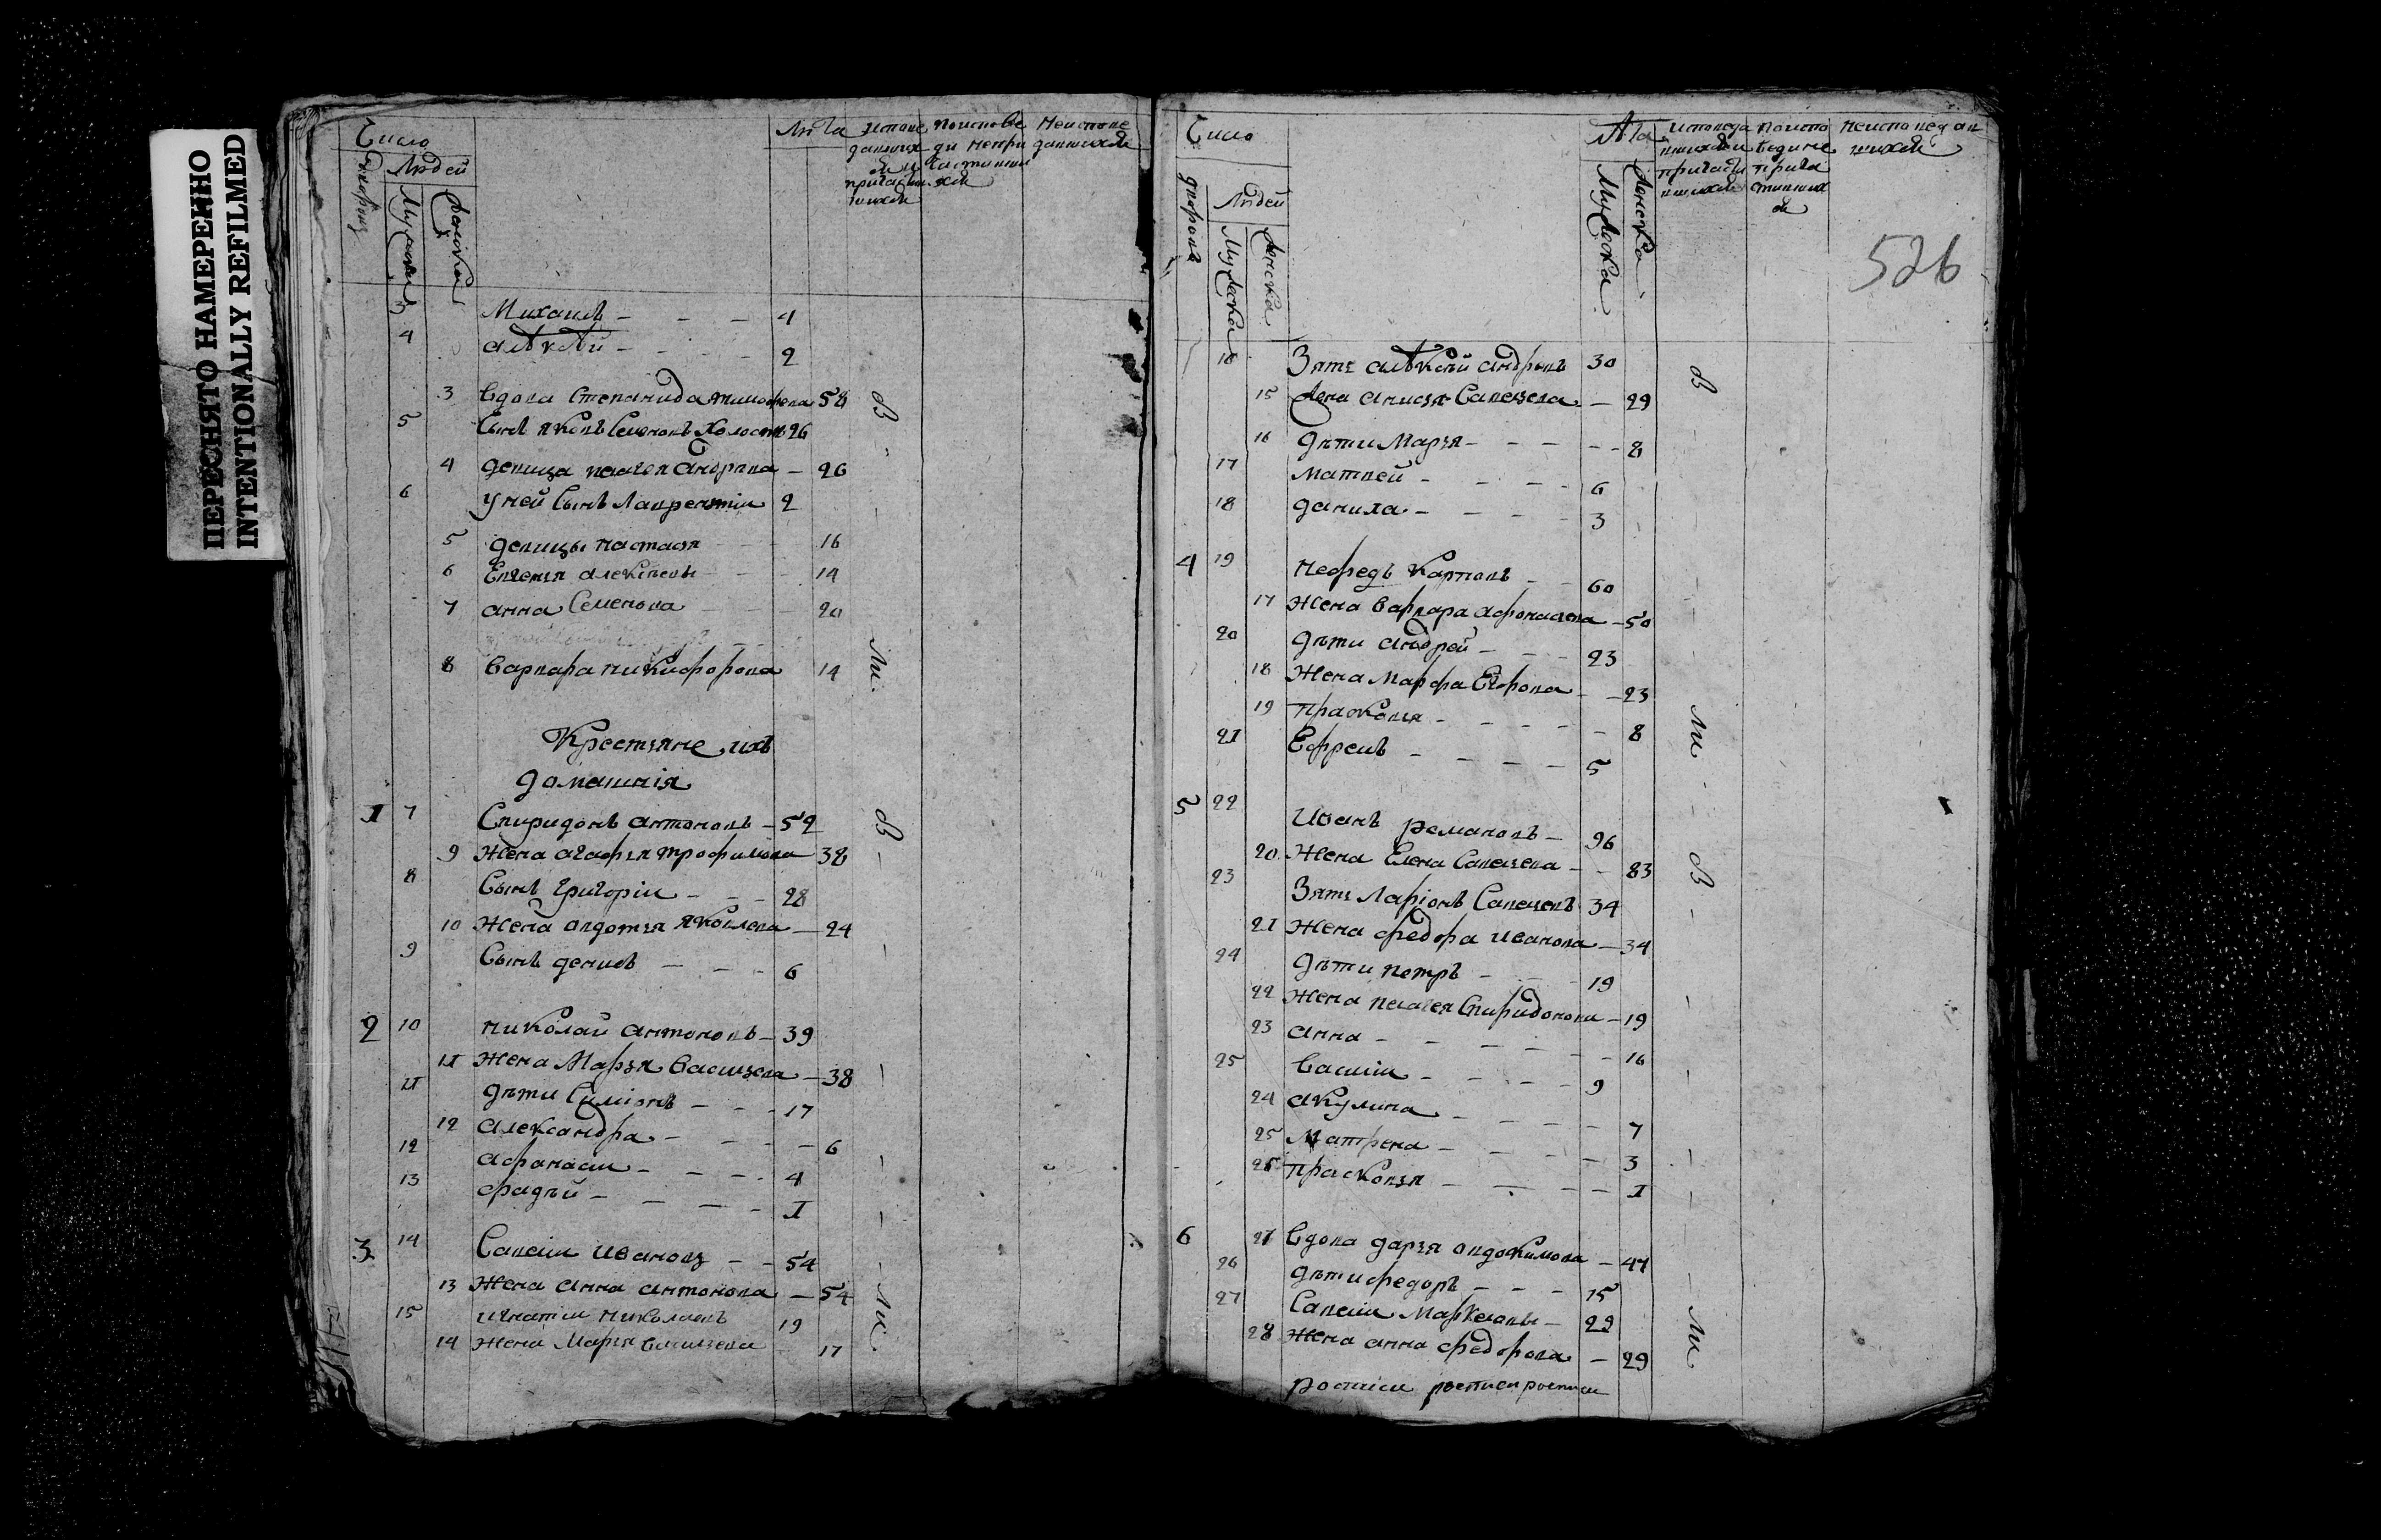 ПЕРЕСНЯТО НАМЕРЕННО
INTENTIONALLY REFILMED
Число
дворовъ
Людей
Мужеска
Женска
Лѣта
3 Михаилъ - - - 4
4 алѣксѣй - - - 2
3 Вдова Степанида тимофева 58
5 Сынъ яковъ Семеновъ Холостъ 26
4 девица пелагея андрѣева - 26
6 У ней Сынъ Лаврентии 2
5 девицы настася 16
6 Евгения алексѣевы 14
7 анна Семенова 20
8 Варвара никифорова 14
Крестьяне ихъ
домашнія
1 7 Спиридонъ антоновъ - 52
9 Жена агафья трофимова 38
8 Сынъ Григоріи - - - 28
10 Жена авдотья яковлева - 24
9 Сынъ денисъ - - - 6
2 10 николай антоновъ - 39
11 Жена Марья Васильева - 38
11 дѣти Симіонъ - - - 17
12 александра - - - - 6
12 афанаси - - - 4
13 фадѣй - - - - 1
3 14 Савели Ивановъ - - 54
13 Жена анна антонова - 54
15 игнатии николаевъ 19
14 Жена Марья 17
Число
дворовъ
Людей
Мужеска
Женска
Лѣта
Мужеска
Женска
526
16 Зять алѣксѣй андрѣевъ 30
15 Жена анисья Савельева - 29
16 дѣти Марья - - - - 8
17 матвей - - - - 6
18 данила - - - - 3
4 19 нефедъ Карповъ - - 60
17 Жена варвара афонасьева - 50
20 дѣти андрей - - - 23
18 Жена Марфа Егорова - - 23
19 прасковья - - - - - 8
21 Ефремъ - - - - 5
5 22 Иванъ романовъ - 96
20 Жена Елена Савельева - - 83
23 Зять Ларіонъ Савельевъ 34
21 Жена федора иванова - 34
24 дѣти петръ - - 19
22 Жена пелагея Спиридонова - 19
23 анна - - - - - 16
25 Василіи - - - - 9
24 акулина - - - - 7
25 Матрена - - - - 3
26 прасковья - - - - 1
6 27 Вдова дарья авдокимова - 47
26 дѣти федоръ - - - 15
27 Савели Маркеловы - 29
28 Жена анна федорова - 29